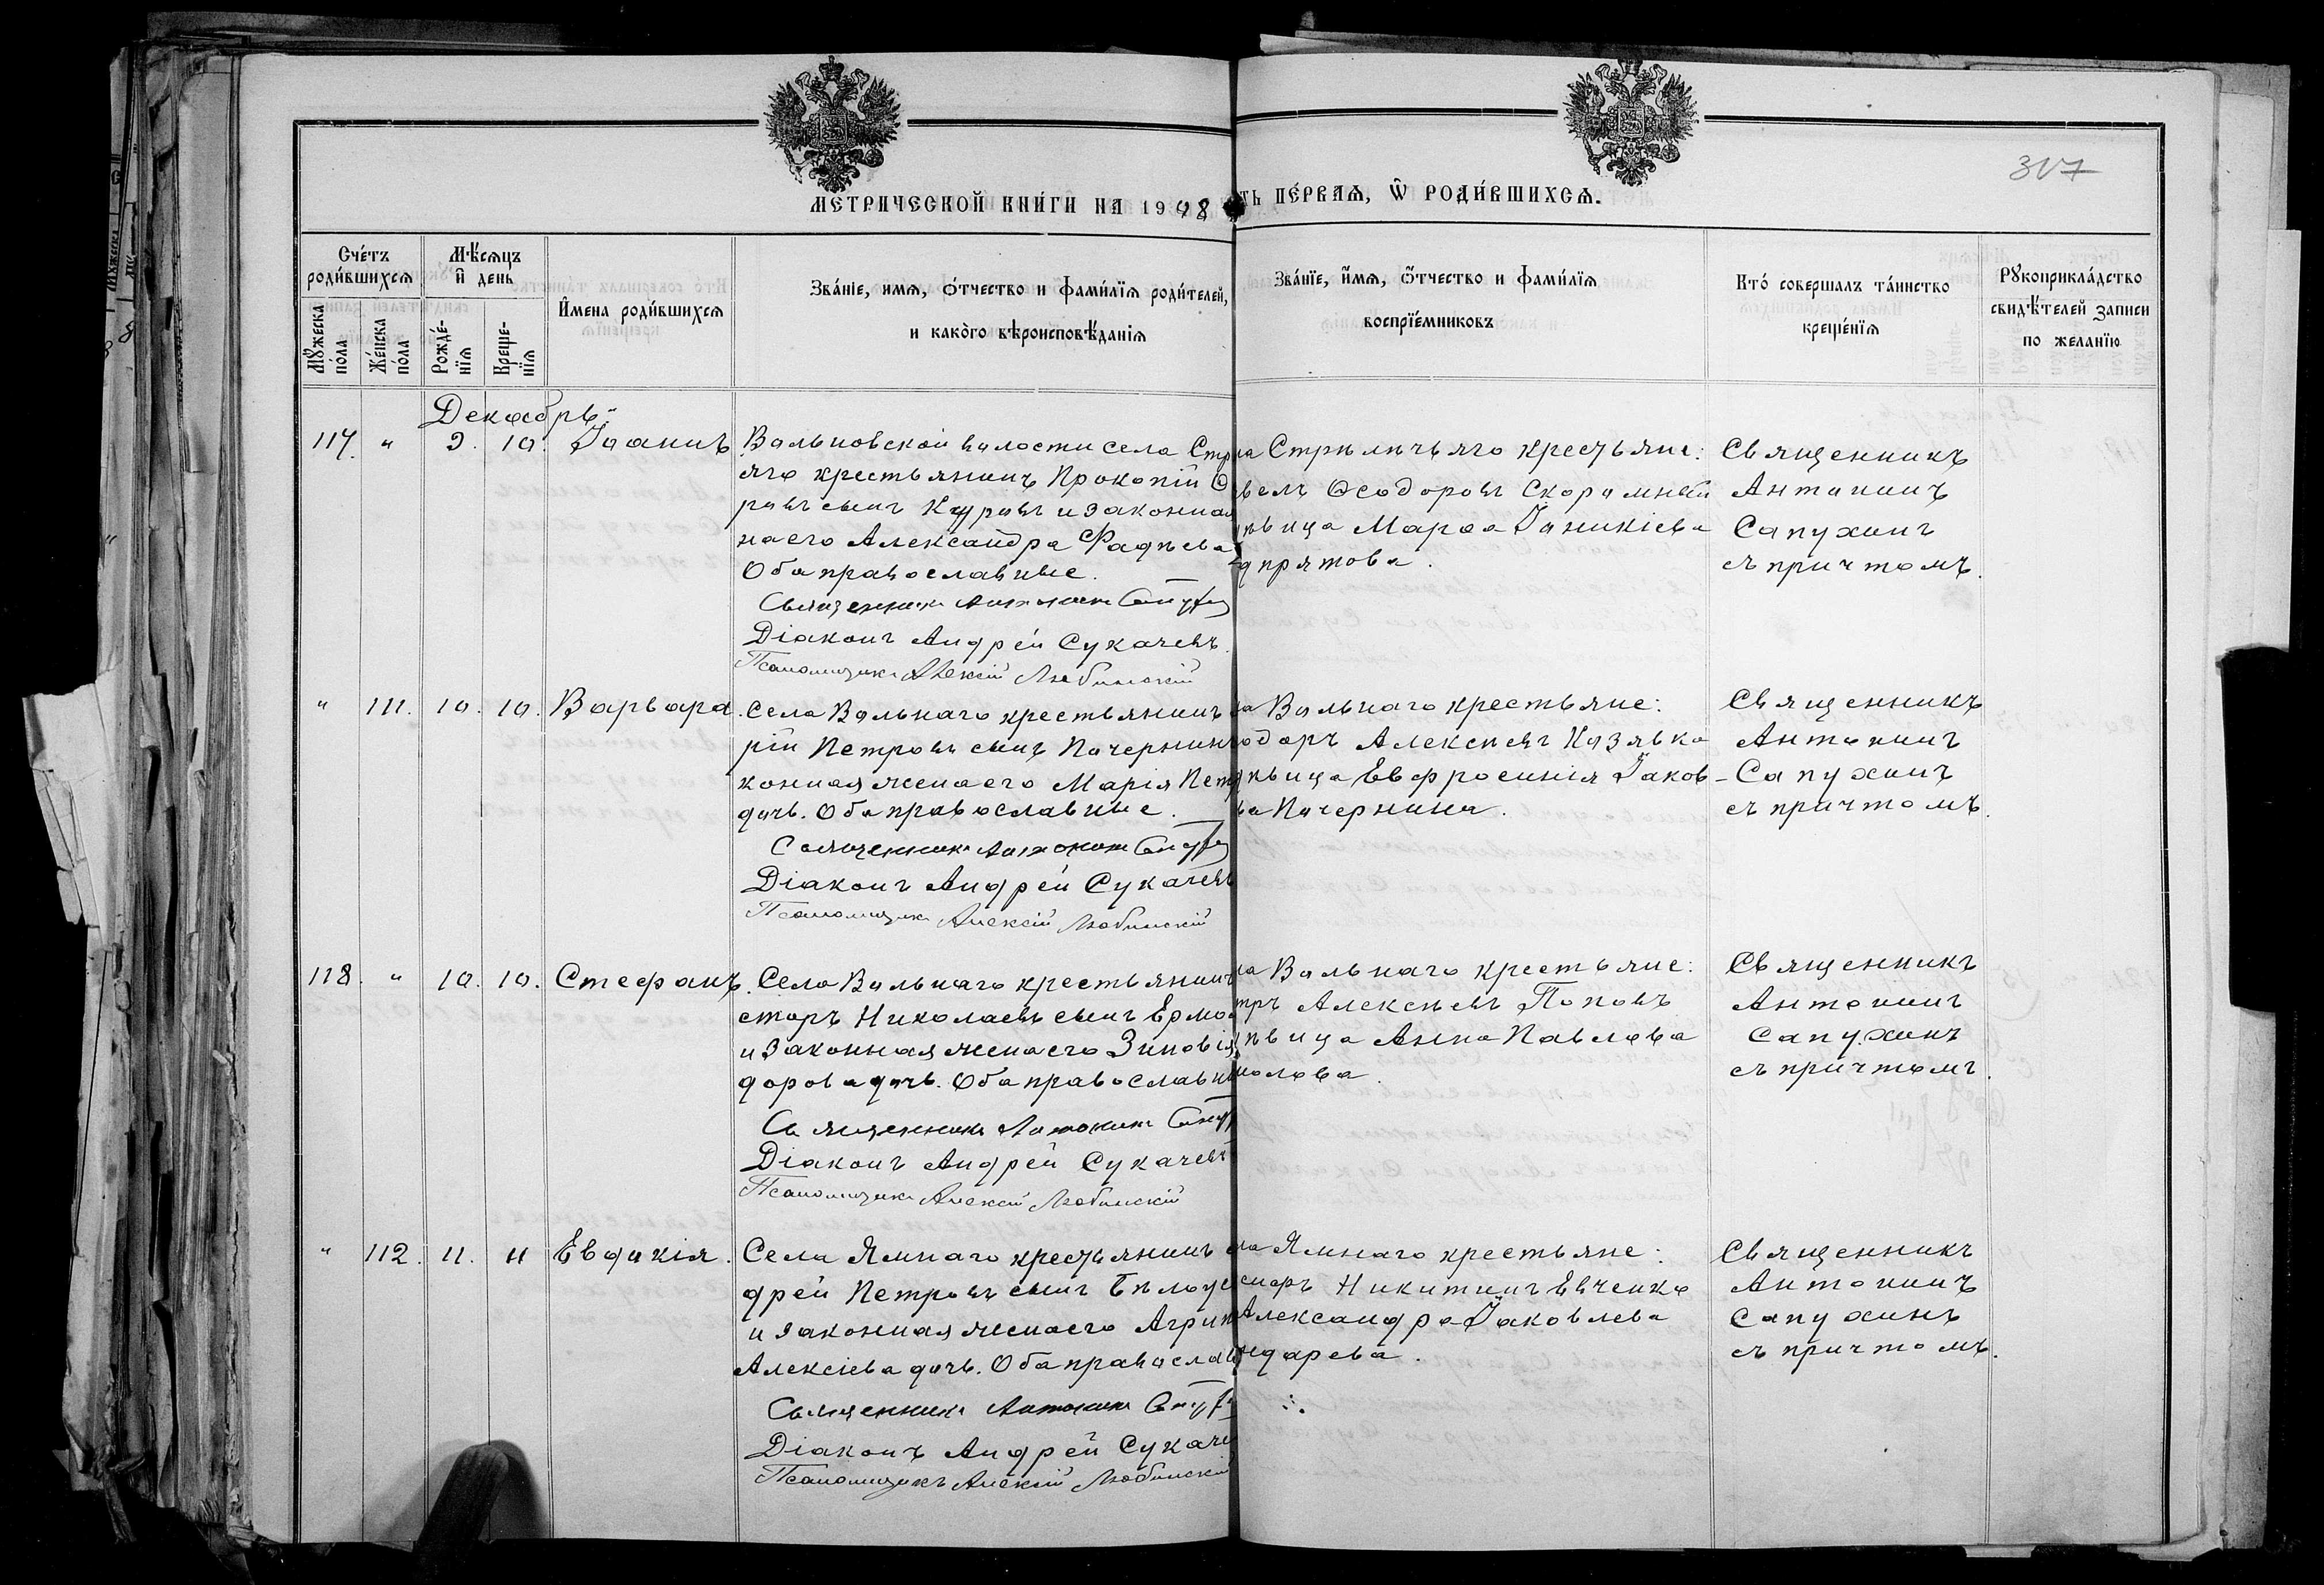 317
МЕТРИЧЕСКОЙ КНИГИ НА 1908
ТЬ ПЕРВАЯ, Ѿ РОДИВШИХСЯ.
Счетъ родившихся
Мужеска пола
Женска пола
Мѣсяцъ и день
Рожденія
Крещенія
Имена родившихся
Званіе, имя, отчество и фамилія родителей,
и какого вѣроисповѣданія
Званіе, имя, отчество и фамилія
воспріемниковъ
Кто совершалъ таинство
крещенія
Рукоприкладство
свидѣтелей записи
по желанію
Декабрь:
117. " 9. 10. Іоаннъ
Вольновской волости села Стр
яго крестьянинъ Прокопій Ѳ
ровъ сынъ Куровъ и законная
на его Александра Фадѣева
Оба православные.
Священникъ Антонинъ Сапух
Діаконъ Андрей Сукачевъ.
Псаломщикъ Алексій Любинскій
ла Стрѣличьяго крестьяне:
велъ Ѳеодоровъ
ѣвица Марѳа Іоникіева
Священникъ
Антонинъ
Сапухинъ
съ причтомъ.
" 111. 10. 10. Варвара.
Села Вольнаго крестьянинъ
рій Петровъ сынъ Почернинъ
конная жена его Марія Пет
дочь. Оба православные.
Священникъ Антонинъ Сапух
Діаконъ Андрей Сукачевъ
Псаломщикъ Алексій Любинскій
ла Вольнаго крестьяне:
одоръ Алексѣевъ Козявко
ѣвица Евфросинія Іаков-
ва Почернина.
Священникъ
Антонинъ
Сапухинъ
съ причтомъ.
118. " 10. 10. Стефанъ.
Села Вольнаго крестьянинъ
сторъ Николаевъ сынъ Ермо
и законная жена его Зиновія
дорова дочь. Оба православн
Священникъ Антонинъ Сапух
Діаконъ Андрей Сукачевъ
Псаломщикъ Алексій Любинскій
ла Вольнаго крестьяне:
тръ Алексѣевъ Поповъ
ѣвица Анна Павлова
молова.
Священникъ
Антонинъ
Сапухинъ
съ причтомъ.
" 112. 11. 11 Евдокія.
Села Ямнаго крестьянинъ
дрей Петровъ сынъ Бѣлоус
и законная жена его Агрип
Алексіева дочь. Оба православ
Священникъ Антонинъ Сапух
Діаконъ Андрей Сукаче
Псаломщикъ Алексій Любинскій
ла Ямнаго крестьяне:
Никитинъ Евченко
Александра Іаковлева
ндарева.
Священникъ
Антонинъ
Сапухинъ
съ причтомъ.